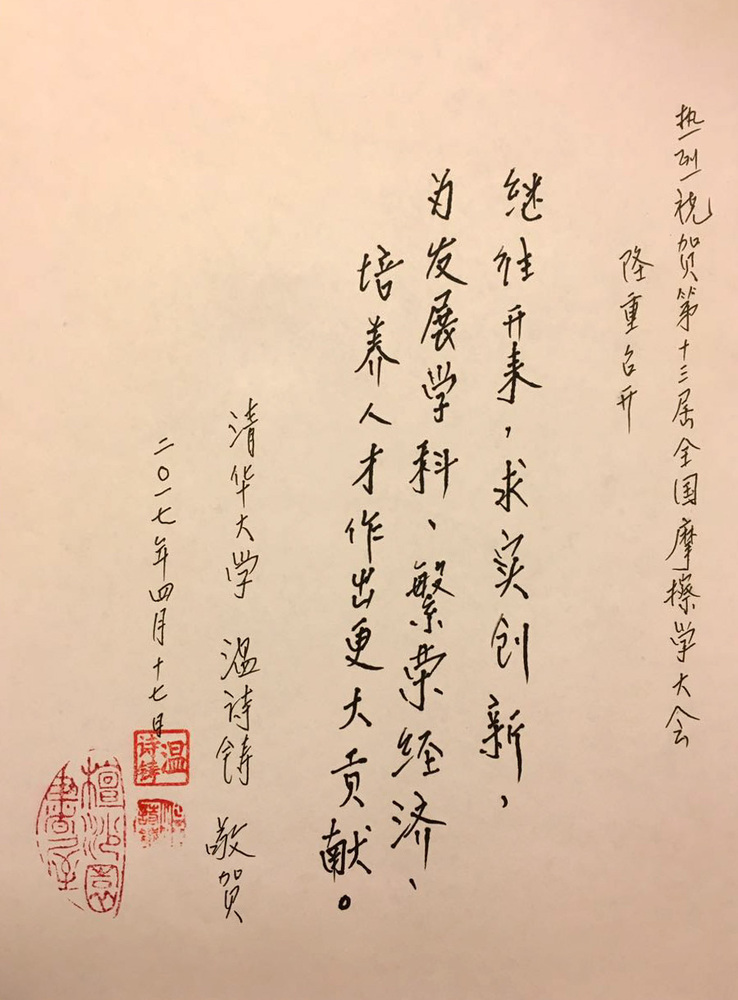 热烈祝贺第十三届全国摩擦学大会
隆重召开
继往开来，求实创新，
为发展学科、繁荣经济、
培养人才作出更大贡献。
清华大学 温诗铸 敬贺
二〇一七年四月十七日
温诗铸